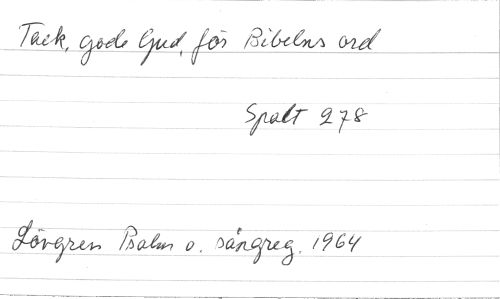 Tack, gode Gud, för Bibelns ord
Spalt 278
Lövgren Psalm o. sångreg. 1964